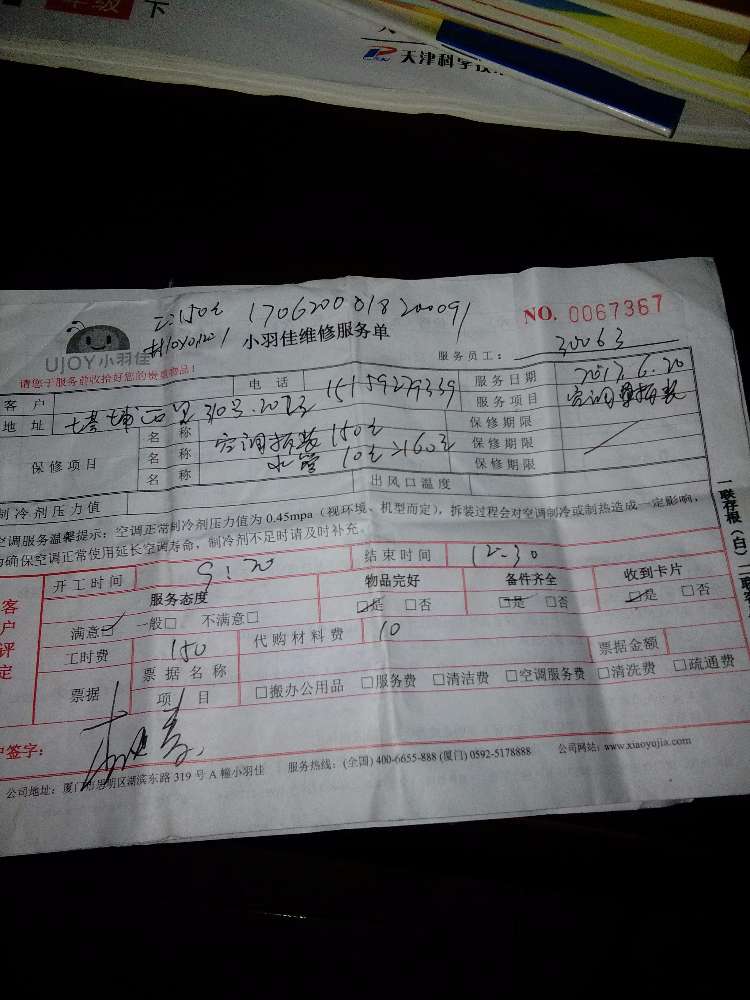 下
天津科学技
1706200018200091
NO. 0067367
UJOY小羽佳
小羽佳维修服务单
服务员工： 30063
请您于服务前收拾好您的贵重物品！
客 户
电 话 15159279339
服务日期 2017.6.20
地 址
服务项目
保修项目
名 称 空调拆装 150元
保修期限
名 称 水管 10元>160元
保修期限
名 称
保修期限
制冷剂压力值
出风口温度
空调服务温馨提示：空调正常制冷剂压力值为 0.45mpa（视环境、机型而定），拆装过程会对空调制冷或制热造成一定影响，
为确保空调正常使用延长空调寿命，制冷剂不足时请及时补充。
开工时间 9:20
结束时间 12-30
客户评定
服务态度
物品完好
备件齐全
收到卡片
满意□ 一般□ 不满意□
□是 □否
□是 □否
□是 □否
工时费 150
代购材料费 10
票据
票据名称
票据金额
项 目
□搬办公用品 □服务费 □清洁费 □空调服务费 □清洗费 □疏通费
户签字：
公司地址：厦门市思明区湖滨东路 319 号 A 幢小羽佳 服务热线：(全国) 400-6655-888 (厦门) 0592-5178888 公司网站：www.xiaoyujia.com
一联存根（白）二联客